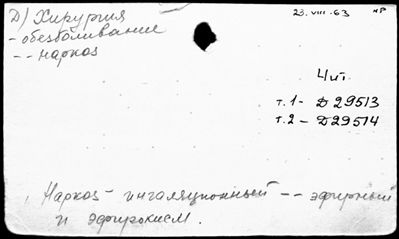 Д) Хирургия 23.VIII.63 нр
- обезболивание
- - наркоз
Чит
т.1- Д 29513
т.2- Д29514
Наркоз - ингаляционный -- эфирный
и эфирокисл.